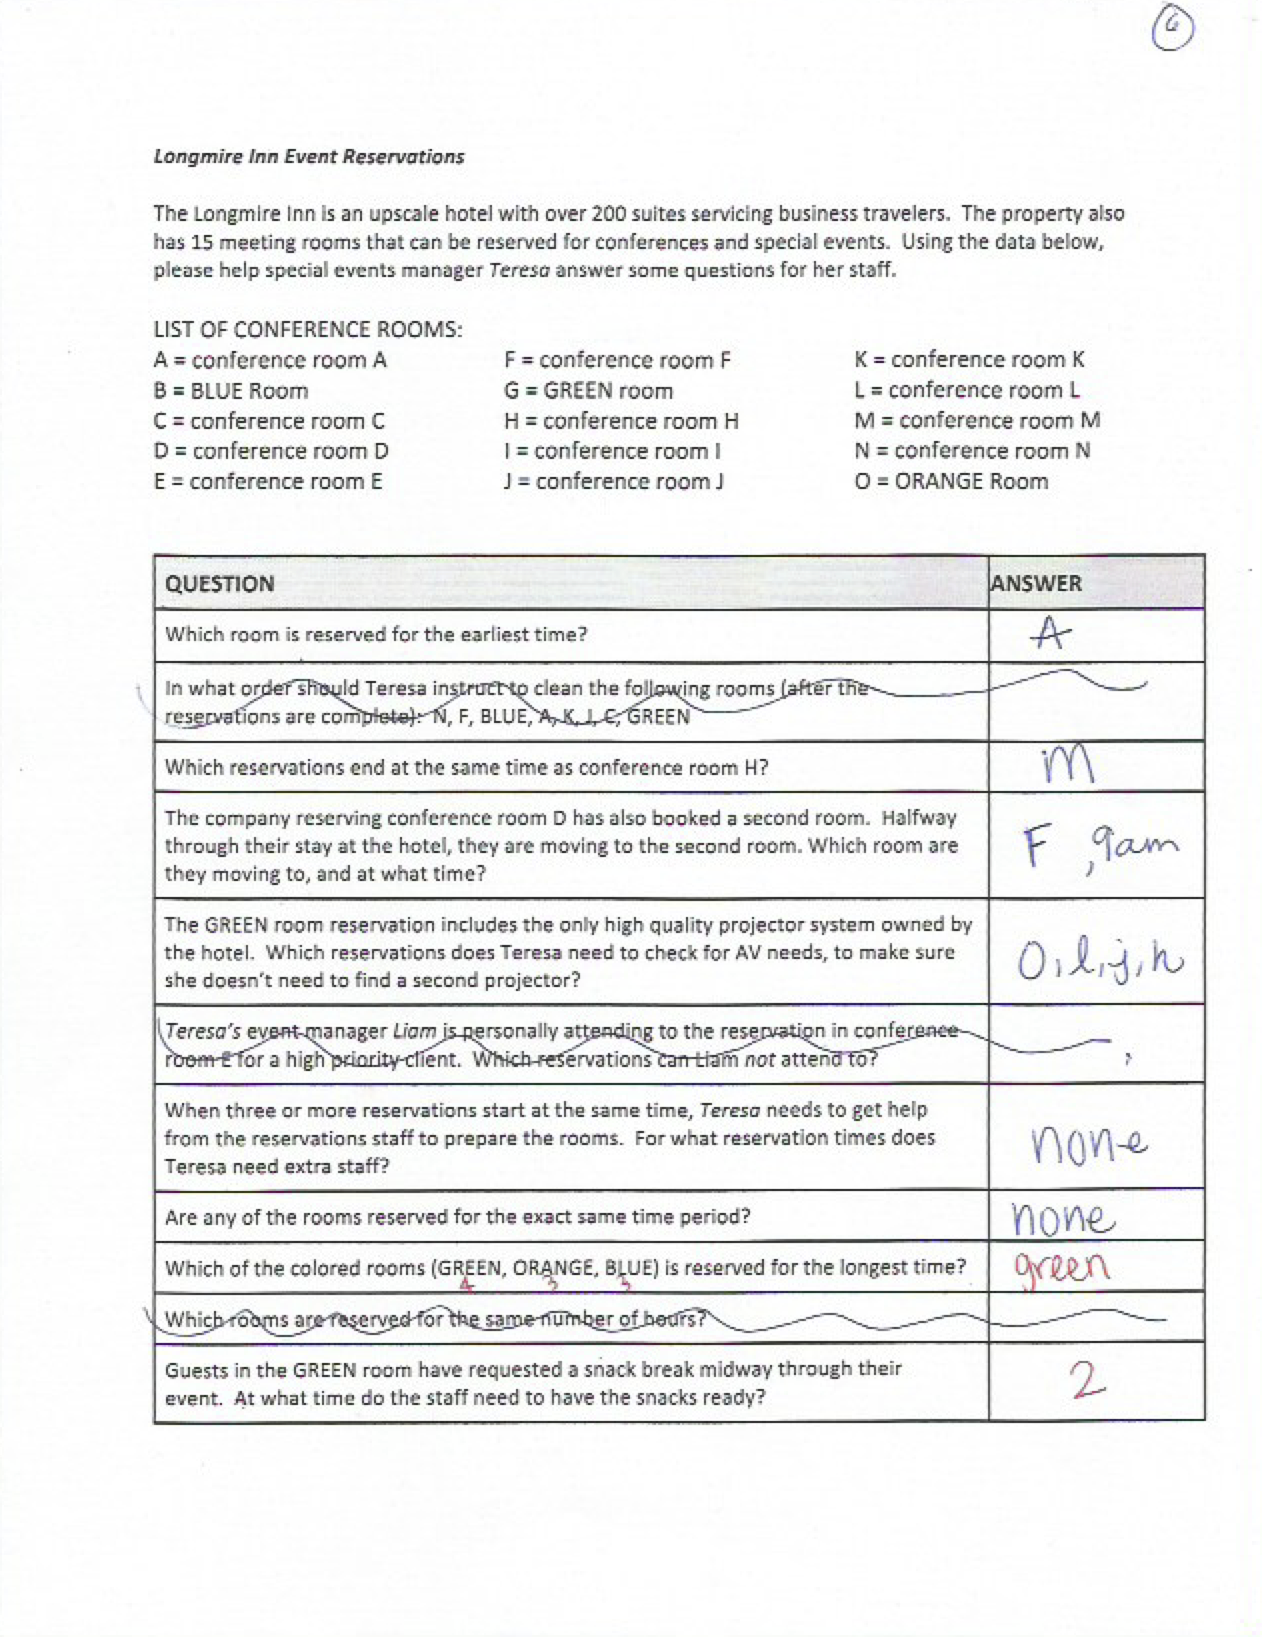 6
Longmire Inn Event Reservations
The Longmire Inn is an upscale hotel with over 200 suites servicing business travelers. The property also
has 15 meeting rooms that can be reserved for conferences and special events. Using the data below,
please help special events manager Teresa answer some questions for her staff.
LIST OF CONFERENCE ROOMS:
A = conference room A F = conference room F K = conference room K
B = BLUE Room G = GREEN room L = conference room L
C = conference room C H = conference room H M = conference room M
D = conference room D I = conference room I N = conference room N
E = conference room E J = conference room J O = ORANGE Room
QUESTION ANSWER
Which room is reserved for the earliest time? A
In what order should Teresa instruct to clean the following rooms (after the
reservations are complete): N, F, BLUE, A, K, J, C, GREEN
Which reservations end at the same time as conference room H? m
The company reserving conference room D has also booked a second room. Halfway
through their stay at the hotel, they are moving to the second room. Which room are
they moving to, and at what time?
F , 9am
The GREEN room reservation includes the only high quality projector system owned by
the hotel. Which reservations does Teresa need to check for AV needs, to make sure
she doesn't need to find a second projector?
O, l, j, h
Teresa's event manager Liam is personally attending to the reservation in conference
room E for a high priority client. Which reservations can Liam not attend to?
When three or more reservations start at the same time, Teresa needs to get help
from the reservations staff to prepare the rooms. For what reservation times does
Teresa need extra staff?
none
Are any of the rooms reserved for the exact same time period? none
Which of the colored rooms (GREEN, ORANGE, BLUE) is reserved for the longest time? green
4 3 3
Which rooms are reserved for the same number of hours?
Guests in the GREEN room have requested a snack break midway through their
event. At what time do the staff need to have the snacks ready?
2